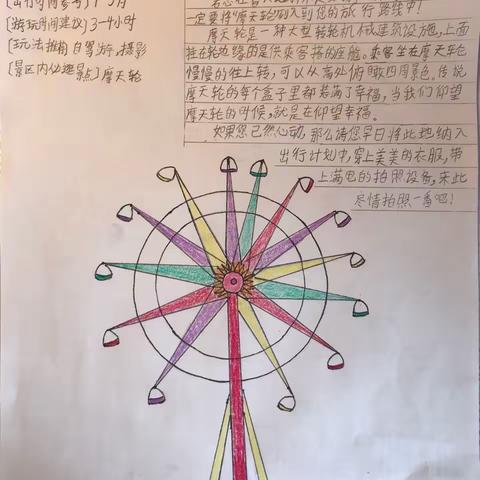 [游玩时间建议] 3-4小时
[玩法推荐] 自驾游,摄影
[景区内必逛景点] 摩天轮
一定要将“摩天轮”列入到您的旅行路线中!
摩天轮是一种大型转轮机械建筑设施,上面
挂在轮边缘的是供乘客搭的座舱。乘客坐在摩天轮
慢慢的往上转,可以从高处俯瞰四周景色。传说
摩天轮的每个盒子里都装满了幸福,当我们仰望
摩天轮的时候,就是在仰望幸福。
如果您已然心动,那么请您早日将此地纳入
出行计划中,穿上美美的衣服,带
上满电的拍照设备,来此
尽情拍照一番吧!